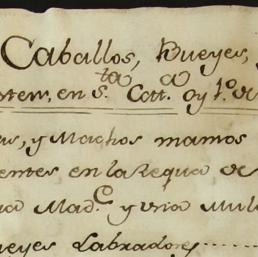 Caballos, Bueyes, y
sten, en S.ta Catt.a oy 1.o de
as, y Machos mamos
entes en la Requa de
na Mad.e y una Mul
ueyes Labradores